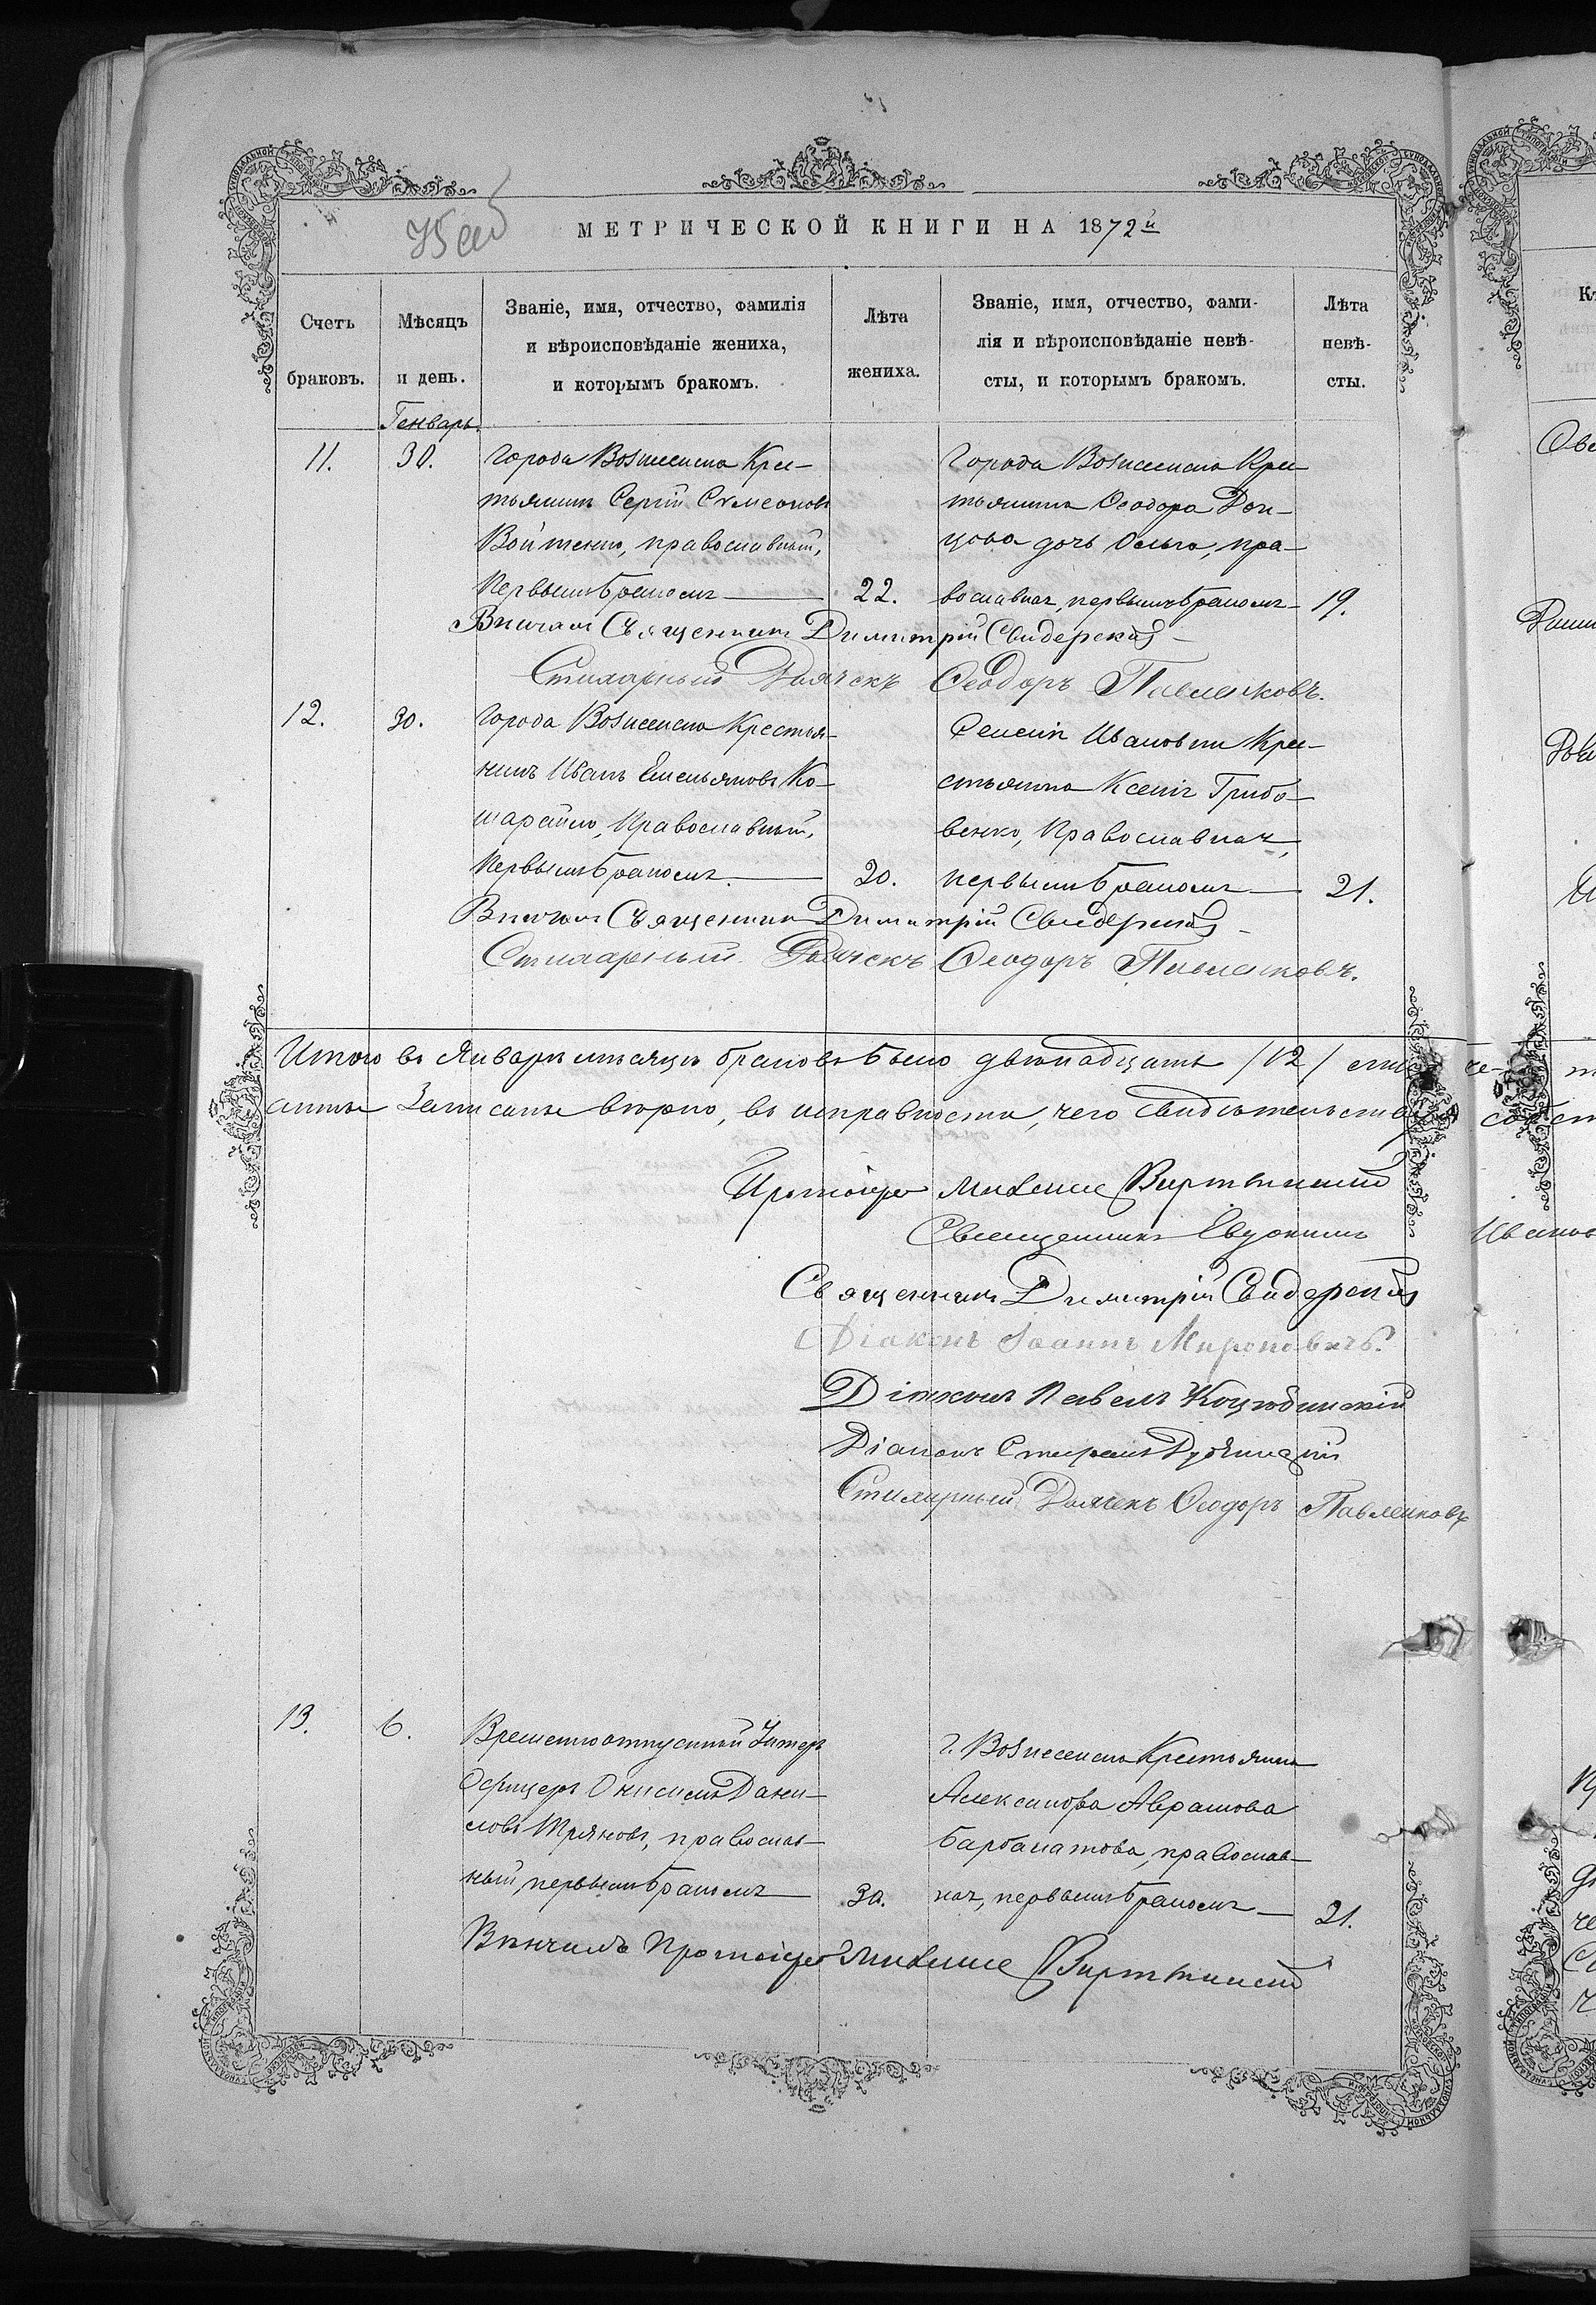 МЕТРИЧЕСКОЙ КНИГИ НА 1872й
Счетъ браковъ.
Мѣсяцъ и день.
Званіе, имя, отчество, фамилія
и вѣроисповѣданіе жениха,
и которымъ бракомъ.
Лѣта жениха.
Званіе, имя, отчество, фами-
лія и вѣроисповѣданіе невѣ-
сты, и которымъ бракомъ.
Лѣта невѣ-
сты.
Генварь.
11. 30.
Города Вознесенска Крес-
тьянинъ Сергій Сѵмеоновъ
Войтенко, православный,
первымъ бракомъ 22.
Города Вознесенска Крес-
тьянина Ѳеодора Дон-
цова дочь Ольга, пра-
вославная, первымъ бракомъ 19.
Вѣнчалъ Священникъ Димитрій Свидерскій
Стихарный Дьячекъ Ѳеодоръ Павленковъ.
12. 30.
Города Вознесенска Крестья-
нинъ Иванъ Емельяновъ Ко-
шарайло, Православный,
первымъ бракомъ. 20.
Ивановки Кре-
стьянка Ксенія Грибо-
венко, Православная,
первымъ бракомъ 21.
Вѣнчалъ Священникъ Димитрій Свидерскій
Стихарный Дьячекъ Ѳеодоръ Павленковъ.
Итого въ Январѣ мѣсяцѣ браковъ было двѣнадцать /12/
записаны вѣрно, въ исправности, чего
Протоіерей Михаилъ
Священникъ Евдокимъ
Священникъ Димитрій Свидерскій
Діаконъ Іоаннъ Мироновичъ.
Діаконъ Павелъ Коцюбинскій
Діаконъ Стефанъ
Стихарный Дьячекъ Ѳеодоръ Павленковъ
13. 6.
Временноотпускной Унтеръ
Офицеръ Онисимъ Дани-
ловъ православ-
ный, первымъ бракомъ 30.
г. Вознесенска Крестьянка
Александра Аврамова
Барбалатова, православ-
ная, первымъ бракомъ 21.
Вѣнчалъ Протоіерей Михаилъ